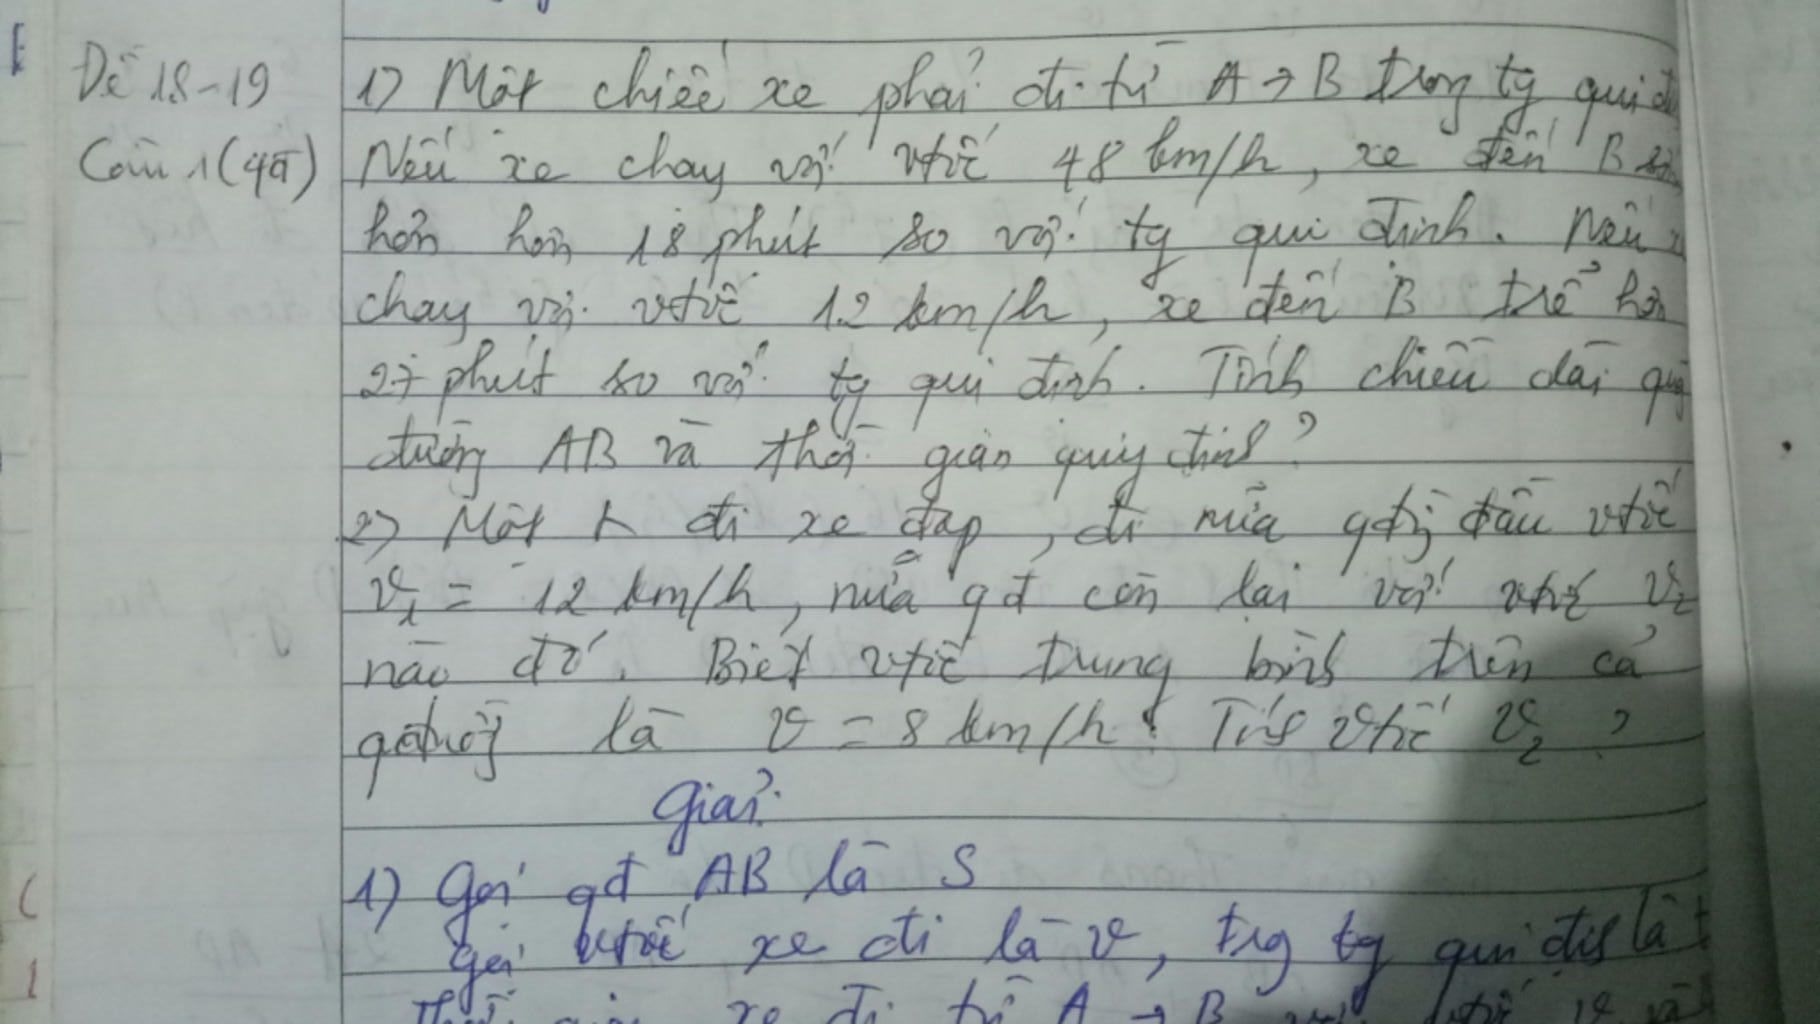 Đề 18-19
Câu 1 (4đ)
1) Một chiếc xe phải đi từ A → B trong tg qui
Nếu xe chạy với vtốc 48 km/h, xe đến B
hơn hơn 18 phút so với tg qui định. Nếu
chạy với vtốc 12 km/h, xe đến B trễ hơn
27 phút so với tg qui định. Tính chiều dài
đường AB và thời gian quy định?
2) Một đi xe đạp, đi nửa qđg đầu vtốc
v₁ = 12 km/h, nửa qđ còn lại với vtốc v₂
nào đó. Biết vtốc trung bình trên cả
là v = 8 km/h. Tính vtốc v₂?
Giải:
1) Gọi qđ AB là S
Gọi vtốc xe đi là v, trg tg qui định là t
xe đi từ A → B